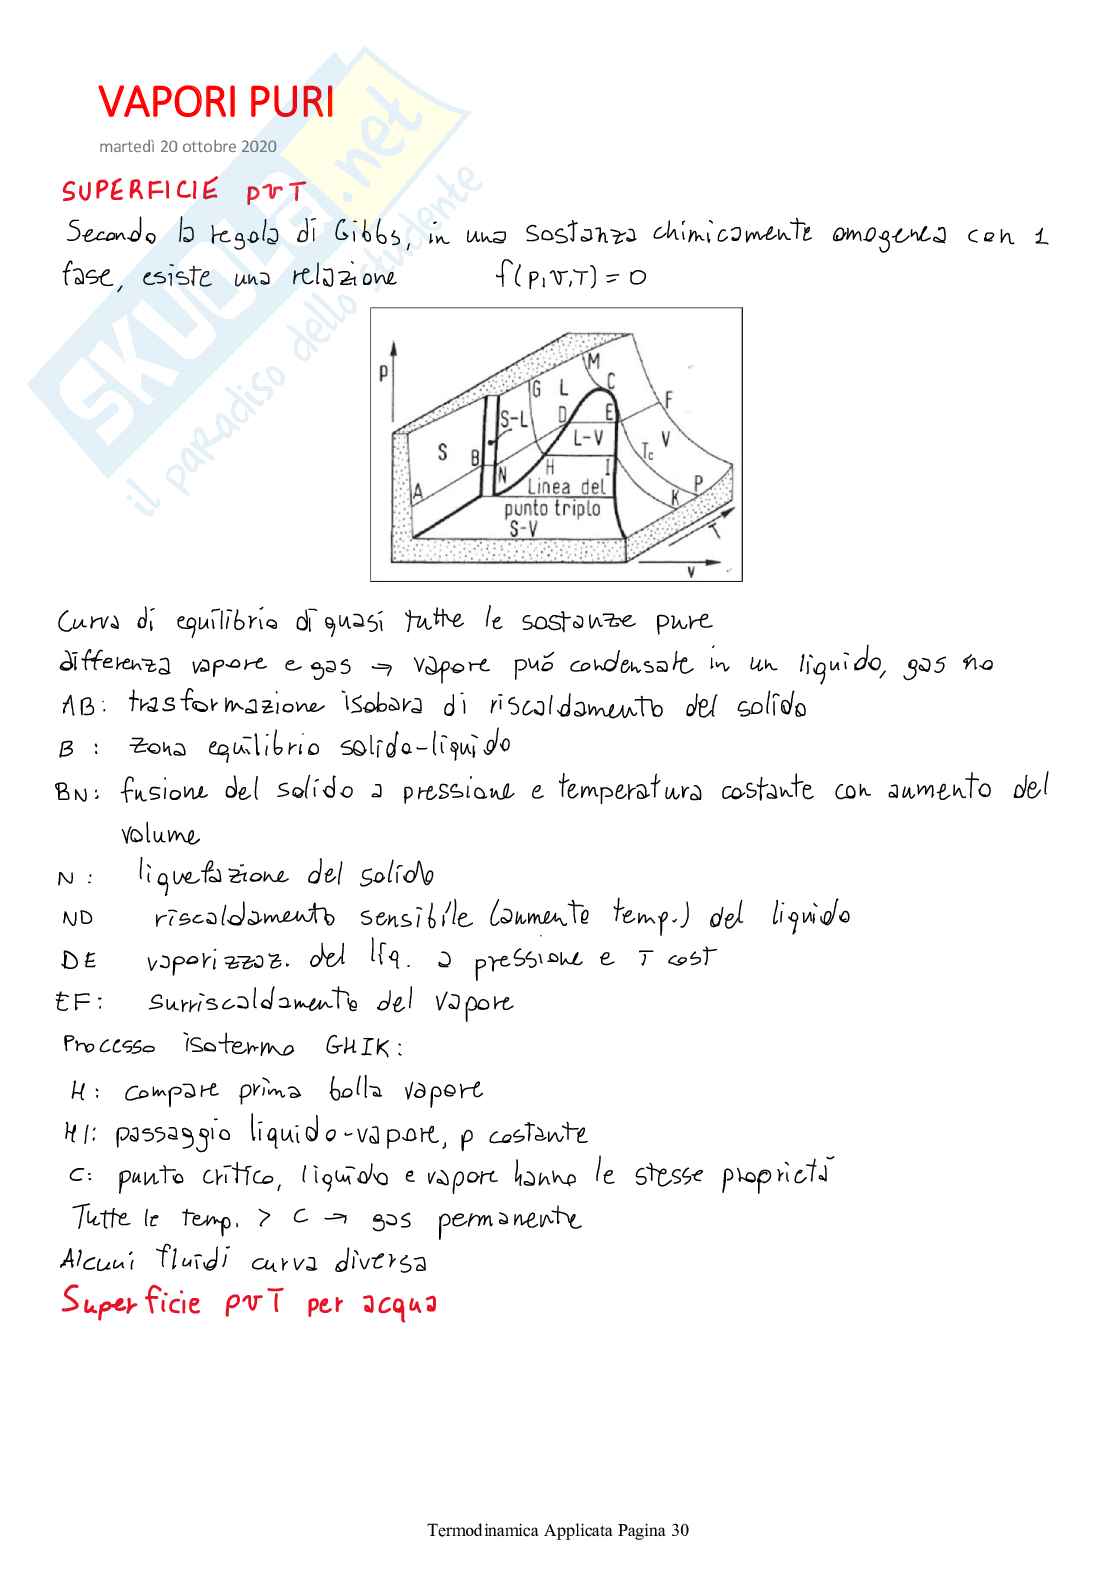 VAPORI PURI
martedì 20 ottobre 2020
SKUOLA.net
il paradiso dello studente
SUPERFICIE pvT
Secondo la regola di Gibbs, in una sostanza chimicamente omogenea con 1
fase, esiste una relazione f(p,v,T) = 0
p
M
G L C
S-L D E F
S B L-V Tc V
A N H I
Linea del K P
punto triplo
S-V T
v
Curva di equilibrio di quasi tutte le sostanze pure
differenza vapore e gas → vapore può condensate in un liquido, gas no
AB: trasformazione isobara di riscaldamento del solido
B : zona equilibrio solido-liquido
BN: fusione del solido a pressione e temperatura costante con aumento del
volume
N : liquefazione del solido
ND riscaldamento sensibile (aumento temp.) del liquido
DE vaporizzaz. del liq. a pressione e T cost
EF: surriscaldamento del vapore
Processo isotermo GHIK:
H: compare prima bolla vapore
HI: passaggio liquido-vapore, p costante
C: punto critico, liquido e vapore hanno le stesse proprietà
Tutte le temp. > C → gas permanente
Alcuni fluidi curva diversa
Superficie pvT per acqua
Termodinamica Applicata Pagina 30